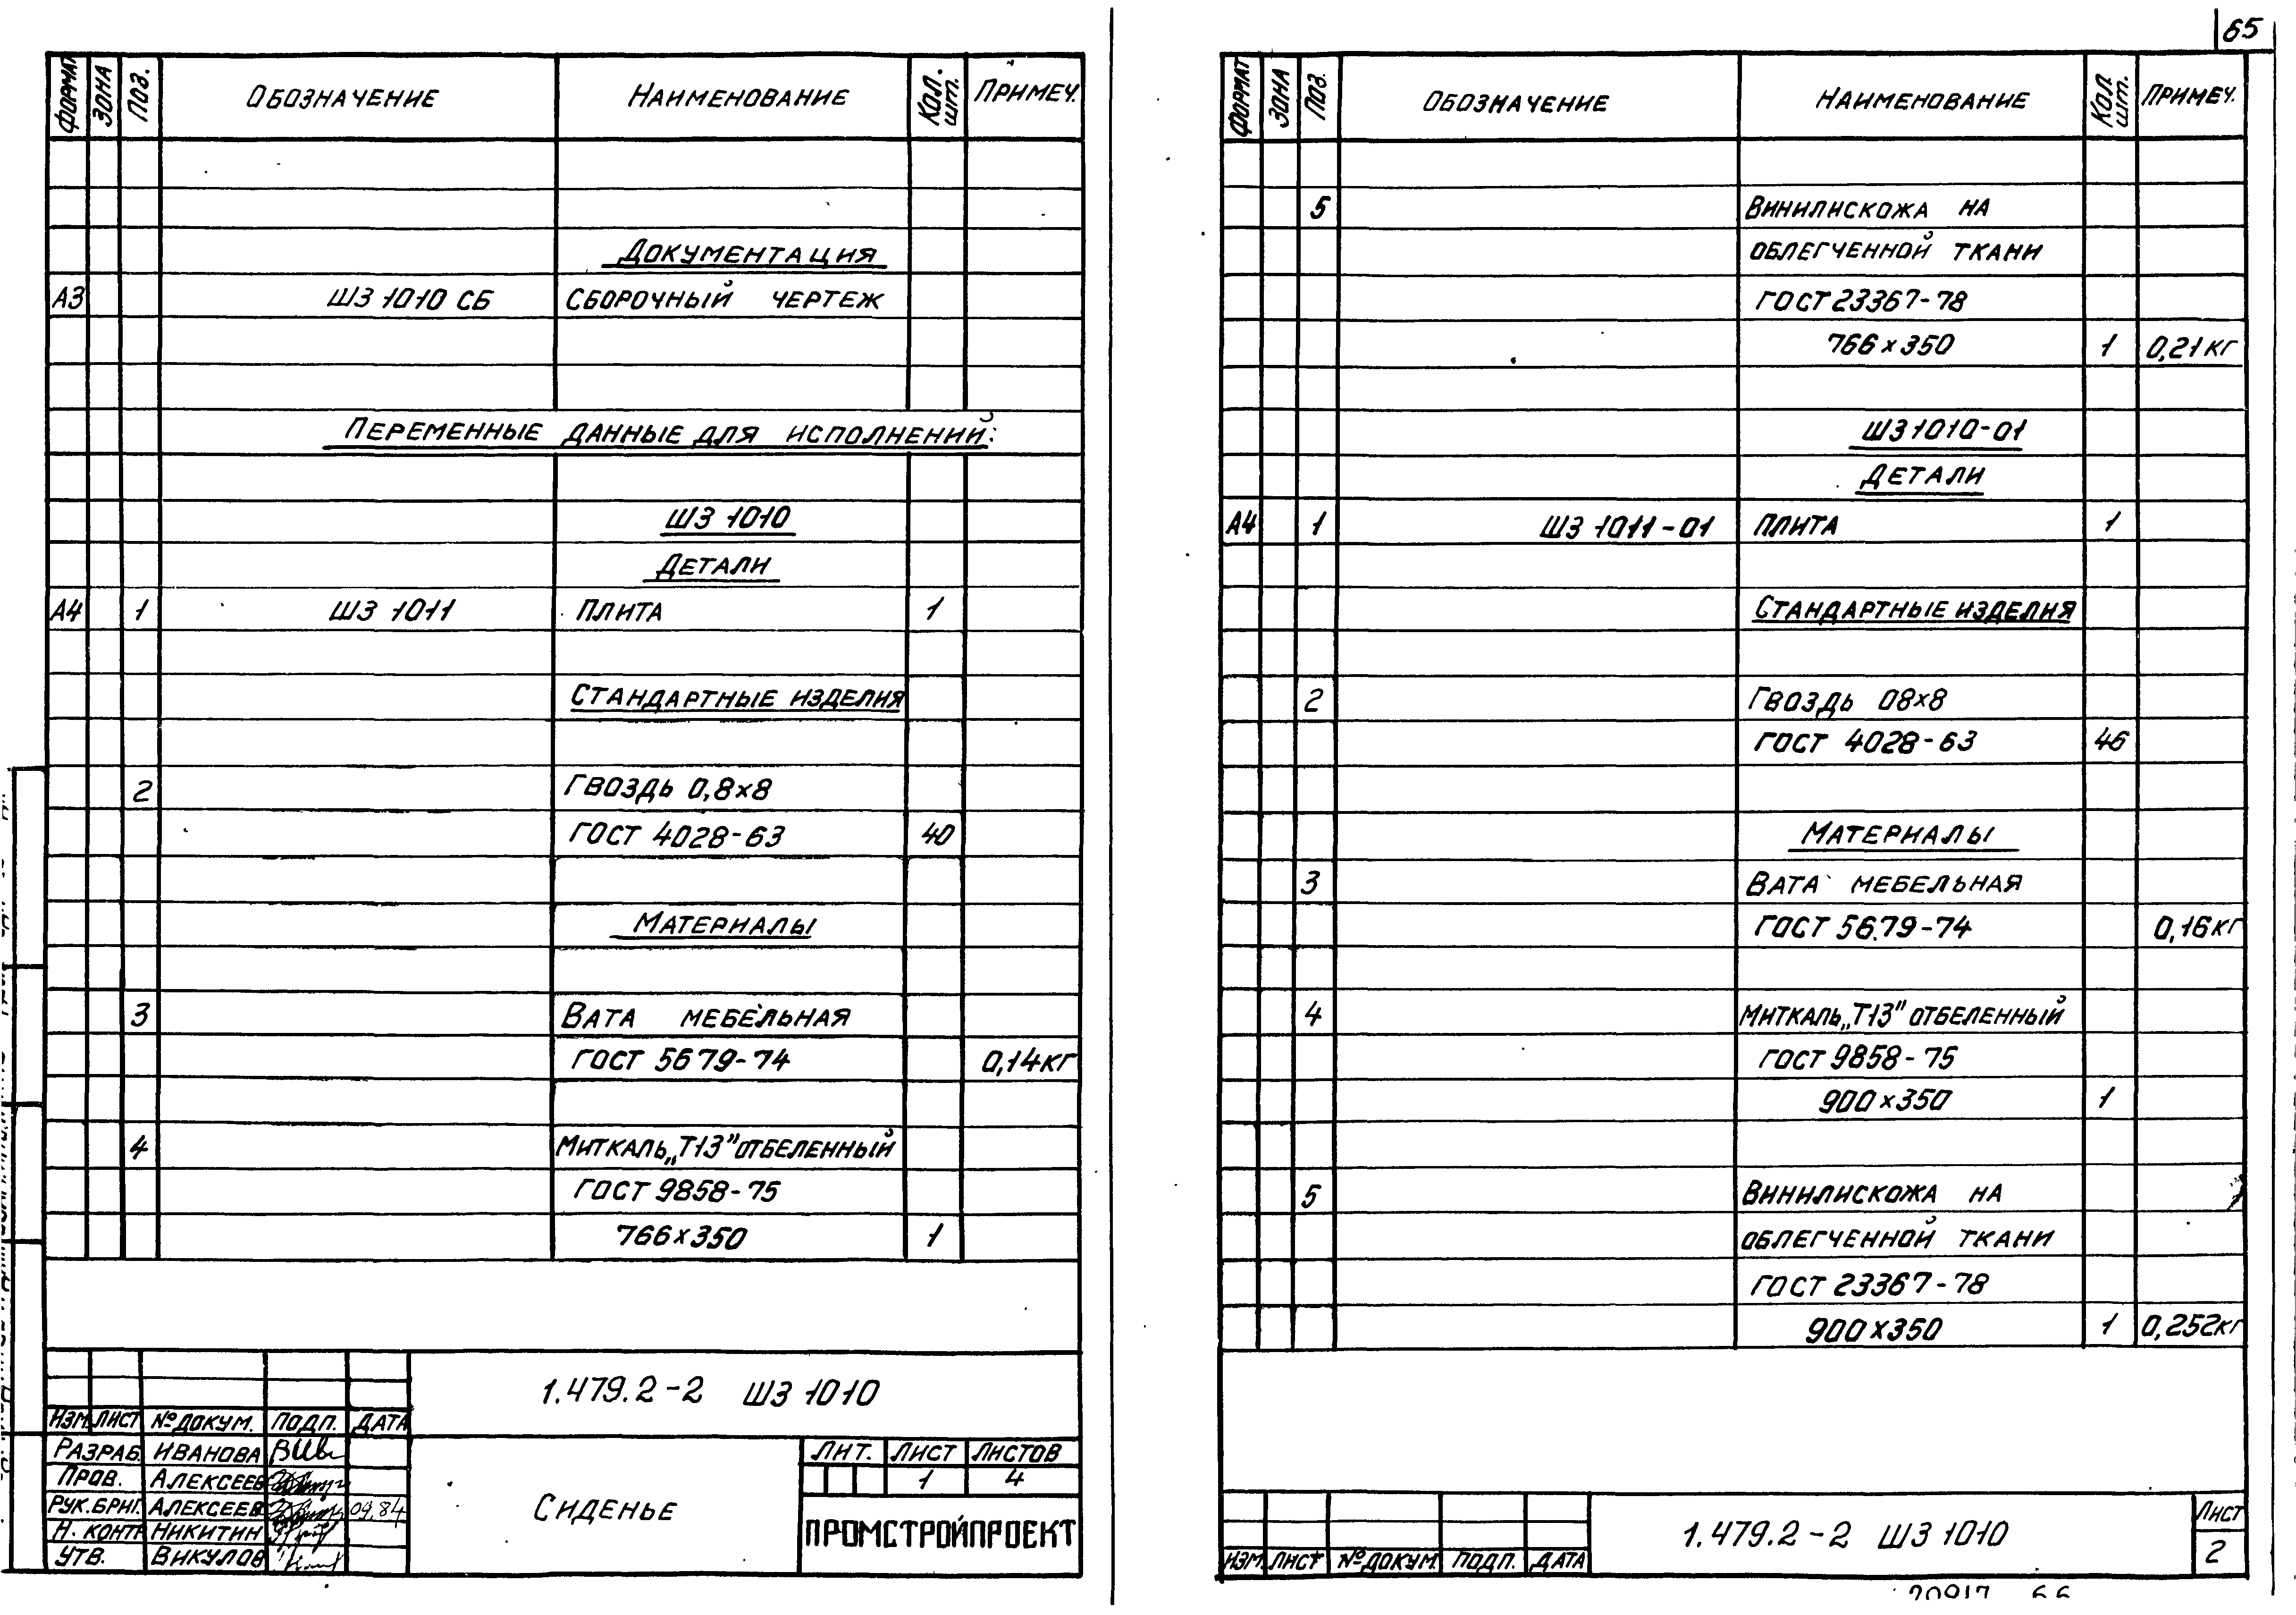 65
ФОРМАТ ЗОНА ПОЗ. ОБОЗНАЧЕНИЕ НАИМЕНОВАНИЕ КОЛ. шт. ПРИМЕЧ.
ДОКУМЕНТАЦИЯ
А3 ШЗ 1010 СБ СБОРОЧНЫЙ ЧЕРТЕЖ
ПЕРЕМЕННЫЕ ДАННЫЕ ДЛЯ ИСПОЛНЕНИЙ:
ШЗ 1010
ДЕТАЛИ
А4 1 ШЗ 1011 ПЛИТА 1
СТАНДАРТНЫЕ ИЗДЕЛИЯ
2 ГВОЗДЬ 0,8×8
ГОСТ 4028-63 40
МАТЕРИАЛЫ
3 ВАТА МЕБЕЛЬНАЯ
ГОСТ 5679-74 0,14кг
4 МИТКАЛЬ „Т-13" ОТБЕЛЕННЫЙ
ГОСТ 9858-75
766×350 1
1.479.2-2 ШЗ 1010
ИЗМ. ЛИСТ №ДОКУМ. ПОДП. ДАТА
РАЗРАБ. ИВАНОВА
ПРОВ. АЛЕКСЕЕВ
РУК.БРИГ. АЛЕКСЕЕВ 09.84
Н. КОНТР. НИКИТИН
УТВ. ВИКУЛОВ
СИДЕНЬЕ
ЛИТ. ЛИСТ ЛИСТОВ
1 4
ПРОМСТРОЙПРОЕКТ
ФОРМАТ ЗОНА ПОЗ. ОБОЗНАЧЕНИЕ НАИМЕНОВАНИЕ КОЛ. шт. ПРИМЕЧ.
5 ВИНИЛИСКОЖА НА
ОБЛЕГЧЕННОЙ ТКАНИ
ГОСТ 23367-78
766×350 1 0,21кг
ШЗ 1010-01
ДЕТАЛИ
А4 1 ШЗ 1011-01 ПЛИТА 1
СТАНДАРТНЫЕ ИЗДЕЛИЯ
2 ГВОЗДЬ 08×8
ГОСТ 4028-63 46
МАТЕРИАЛЫ
3 ВАТА МЕБЕЛЬНАЯ
ГОСТ 5679-74 0,16кг
4 МИТКАЛЬ „Т-13" ОТБЕЛЕННЫЙ
ГОСТ 9858-75
900×350 1
5 ВИНИЛИСКОЖА НА
ОБЛЕГЧЕННОЙ ТКАНИ
ГОСТ 23367-78
900×350 1 0,252кг
1.479.2-2 ШЗ 1010
ЛИСТ
2
ИЗМ. ЛИСТ №ДОКУМ. ПОДП. ДАТА